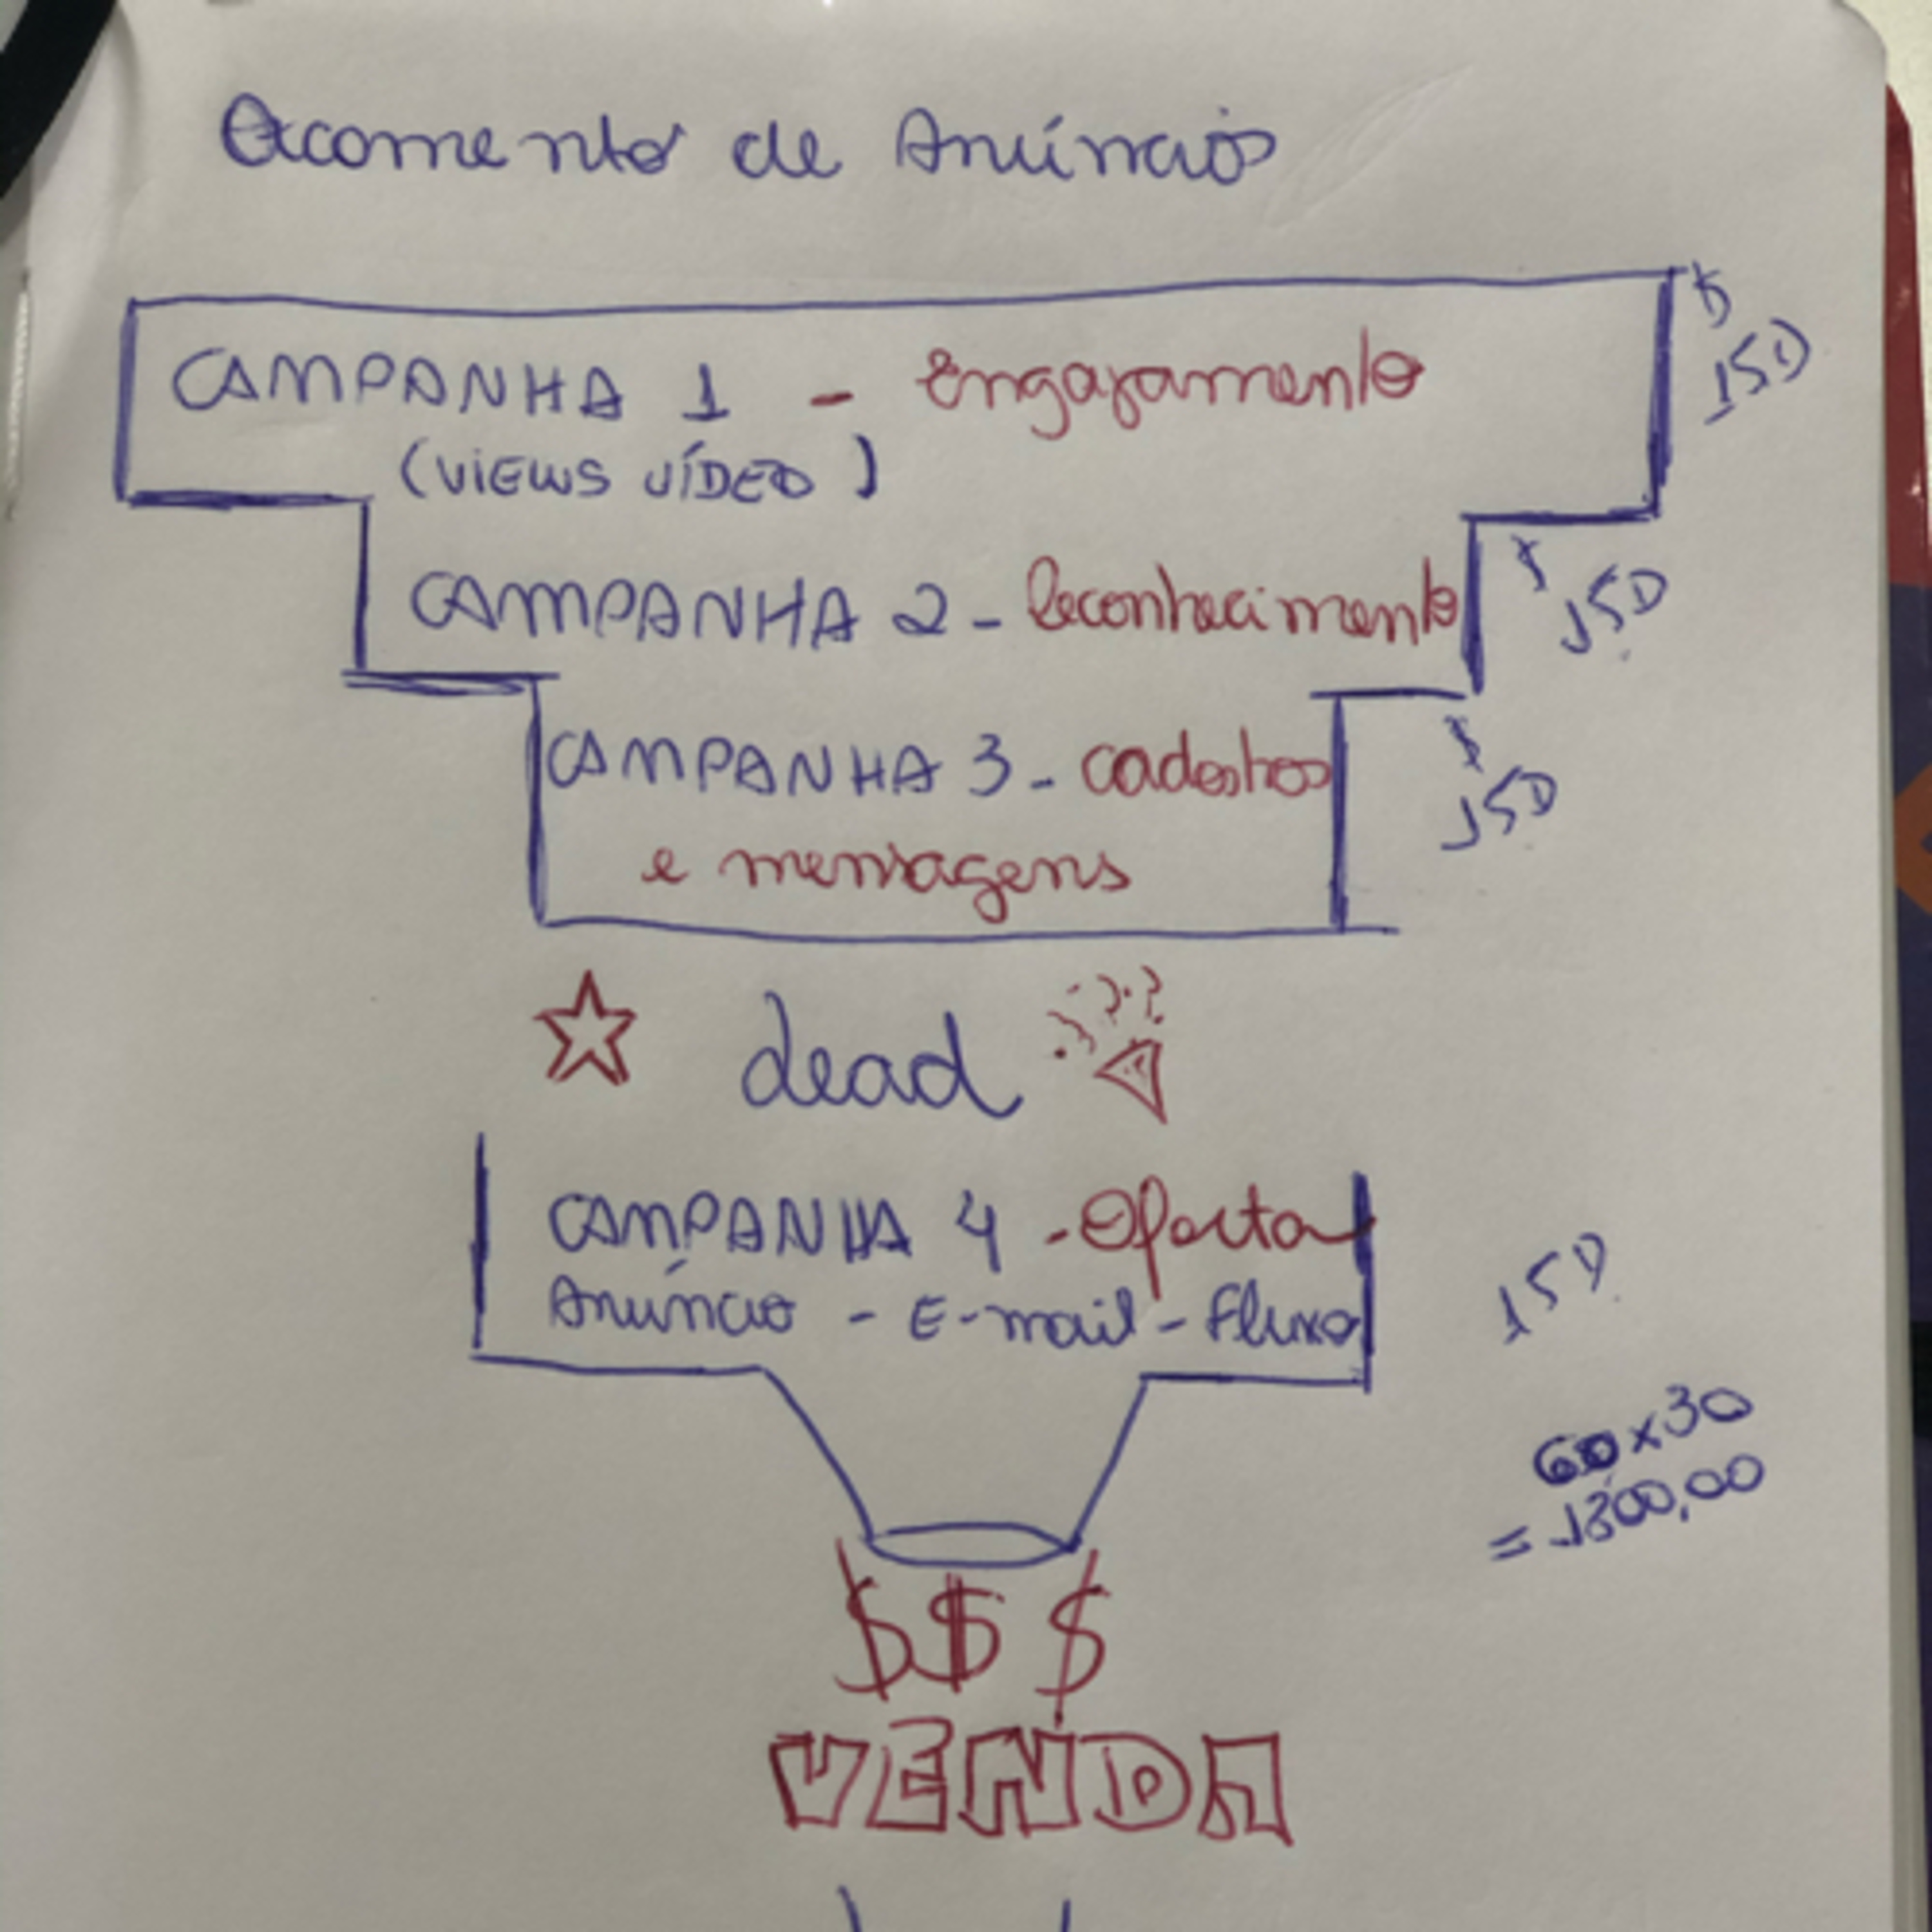 Orçamento de Anúncios
CAMPANHA 1 - Engajamento
15D
(VIEWS VÍDEO)
CAMPANHA 2 - Reconhecimento
15D
CAMPANHA 3 - cadastros
15D
e mensagens
Lead
CAMPANHA 4 - Oferta
Anúncio - E-mail - Fluxo
15D
60x30
= 1800,00
$ $ $
VENDA